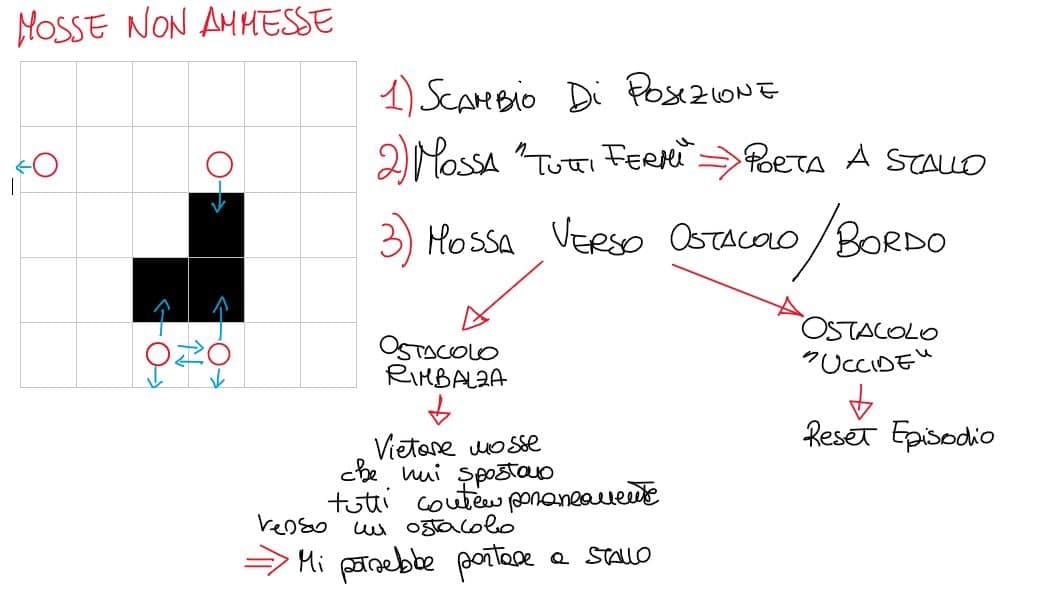 MOSSE NON AMMESSE
1) SCAMBIO Di POSIZIONE
2) MOSSA "TUTTI FERMI" ⇒ PORTA A STALLO
3) MOSSA VERSO OSTACOLO / BORDO
OSTACOLO
RIMBALZA
Vietare mosse
che mi spostano
tutti contemporaneamente
verso un ostacolo
⇒ Mi potrebbe portare a STALLO
OSTACOLO
"UCCIDE"
Reset Episodio